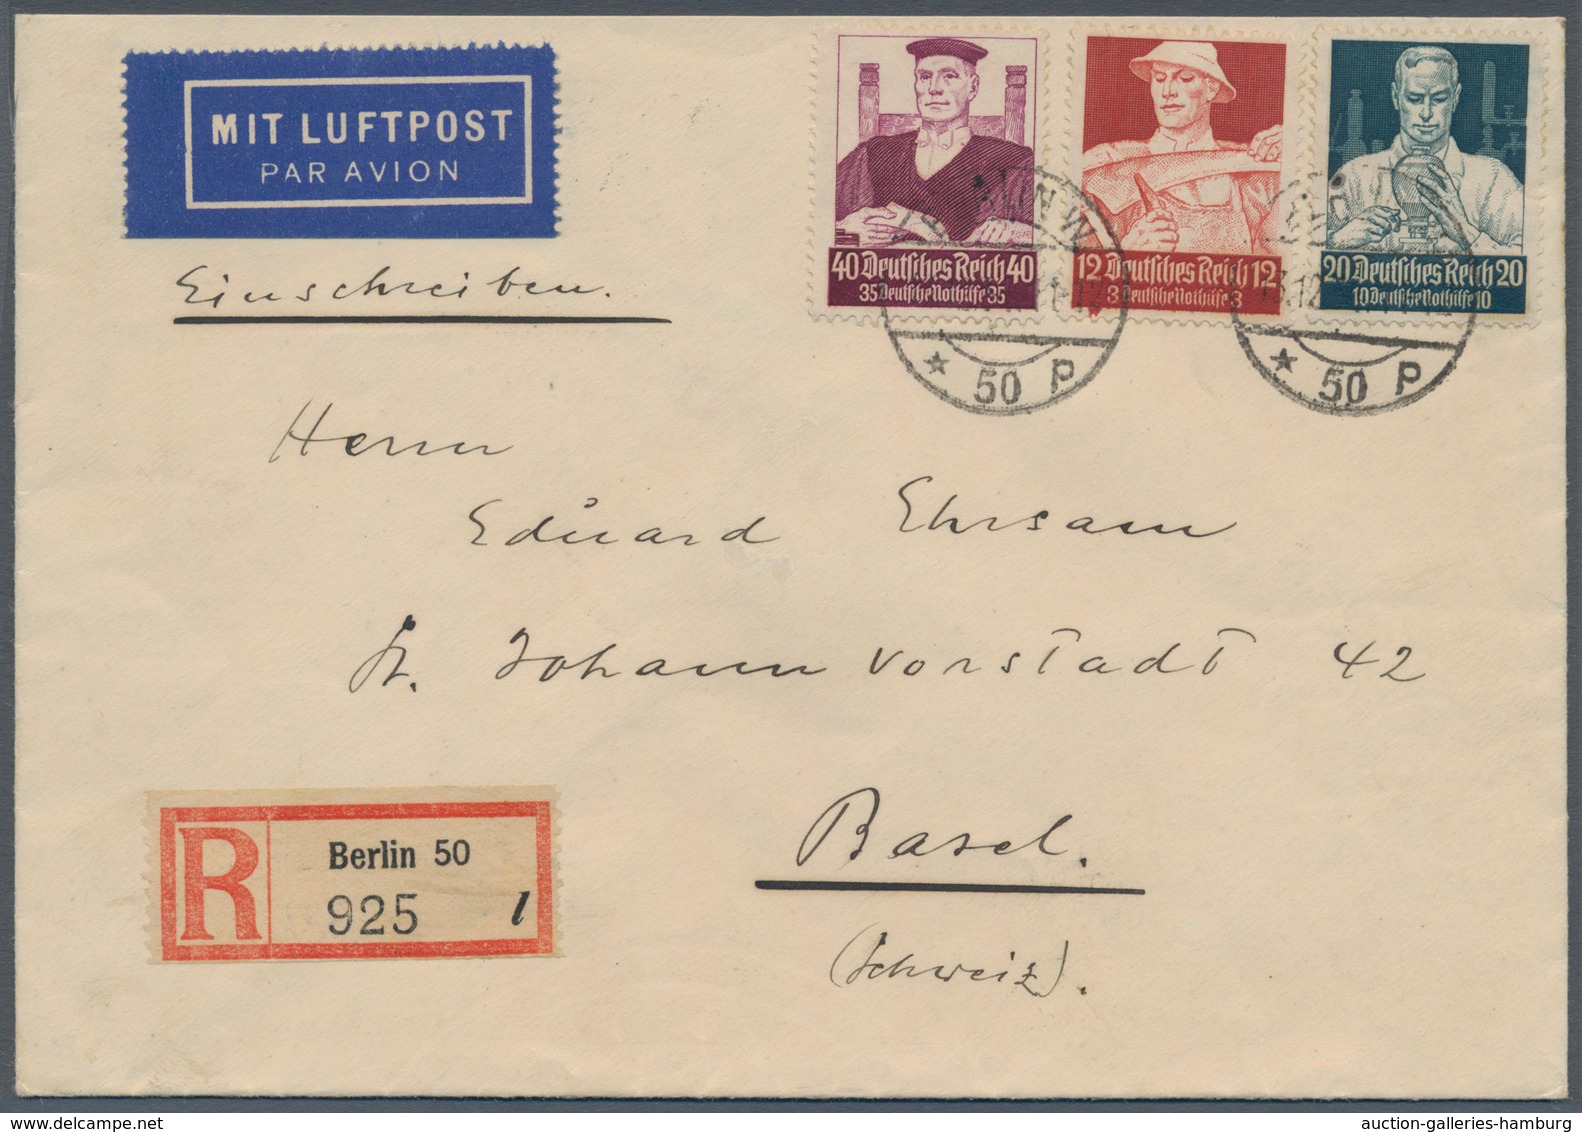 MIT LUFTPOST
PAR AVION
Einschreiben.
40 Deutsches Reich 40
35 Deutsche Nothilfe 35
12 Deutsches Reich 12
3 Deutsche Nothilfe 3
20 Deutsches Reich 20
10 Deutsche Nothilfe 10
* 50 p
* 50 p
Herrn
Eduard Ehrsam
St. Johann vorstadt 42
Basel.
(Schweiz).
R
Berlin 50
925 l
auction-galleries-hamburg